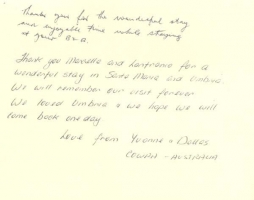 Thank you for the wonderful stay
and enjoyable time while staying
at your B&B.
Thank you Marcella and Lanfranco for a
wonderful stay in Santa Maria and Umbria
We will remember our visit forever
We loved Umbria + we hope we will
come back one day
Love from Yvonne +
COWRA - AUSTRALIA